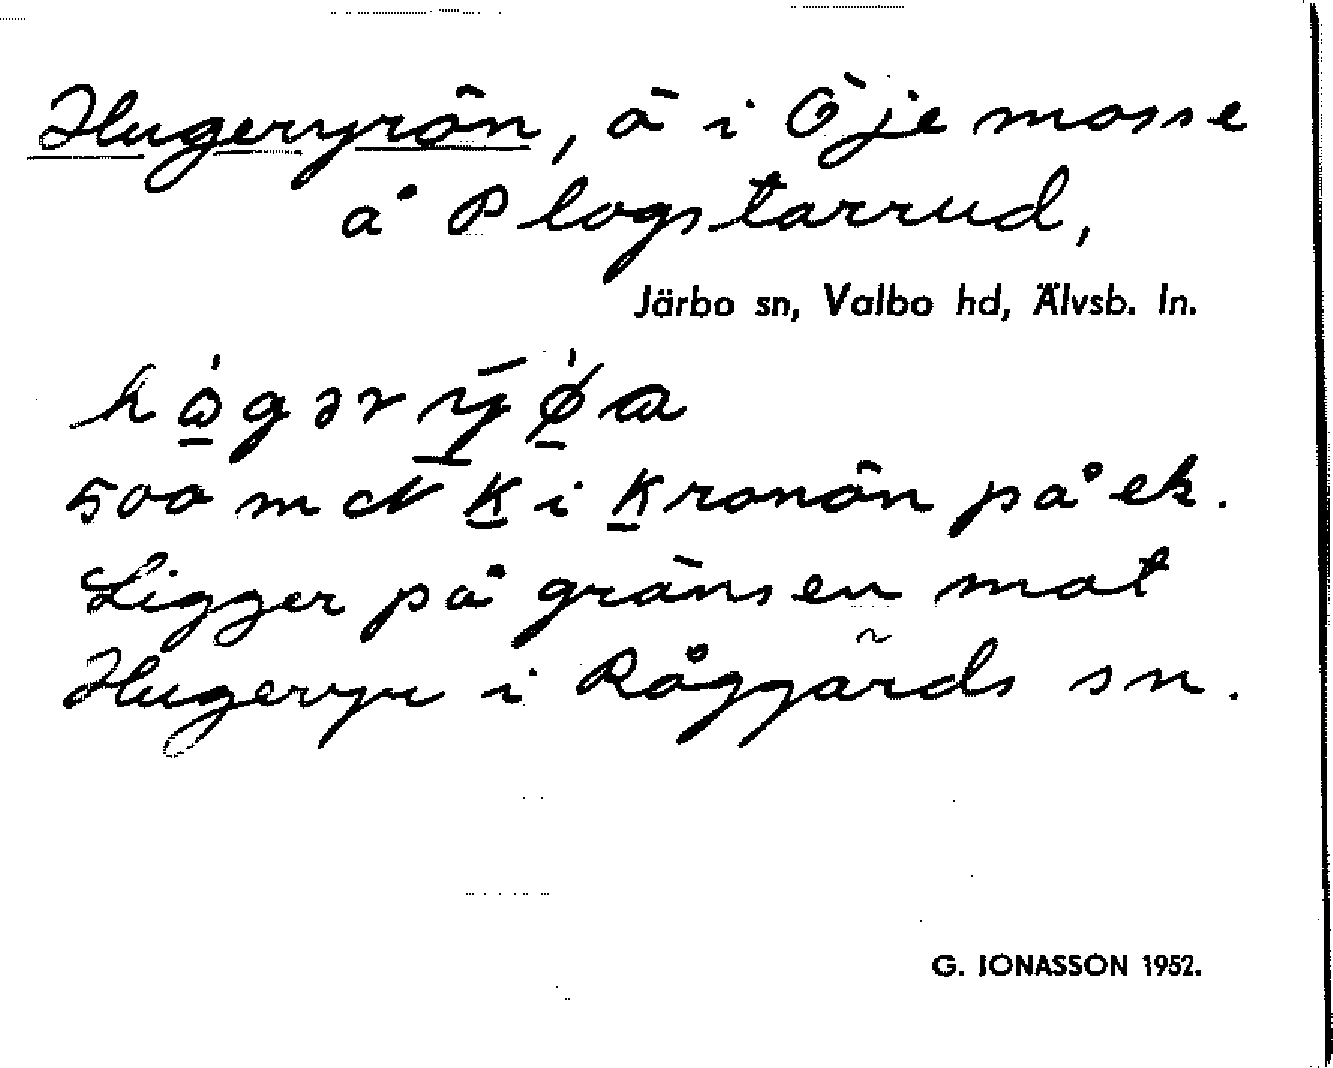 Hugeryrön, ö i Öje mosse
å Plogstarrud,
Järbo sn, Valbo hd, Älvsb. ln.
500 m N K i Kronön på ek.
Ligger på gränsen mot
Hugeryr i Råggärds sn.
G. JONASSON 1952.